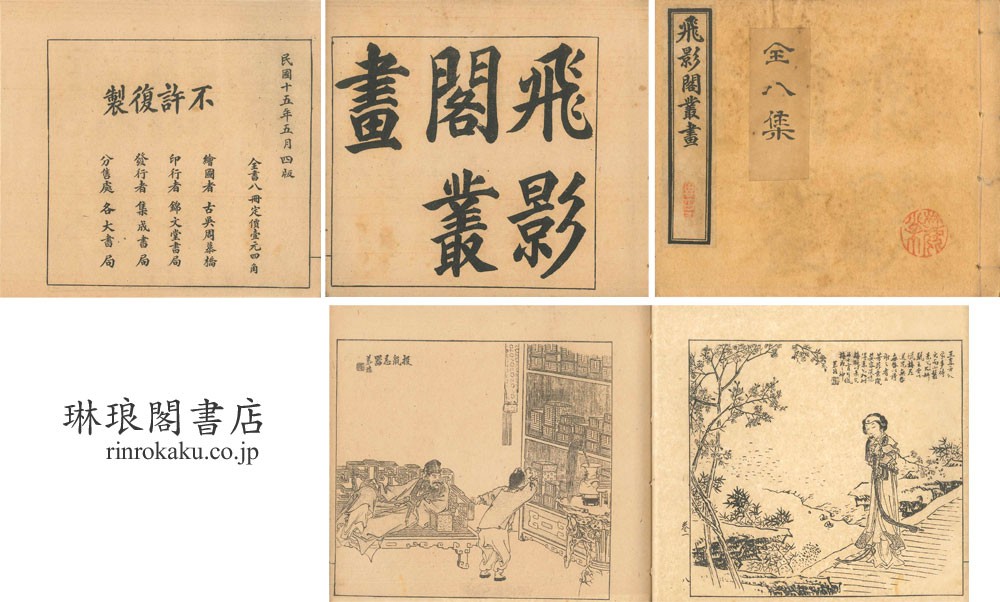 民國十五年五月四版
不許復製
全書八冊定價壹元四角
繪圖者 古吳周慕橋
印行者 錦文堂書局
發行者 集成書局
分售處 各大書局
飛影
閣叢
畫
飛影閣叢畫
全八集
投鼠忌器
慕橋
琳琅閣書店
rinrokaku.co.jp